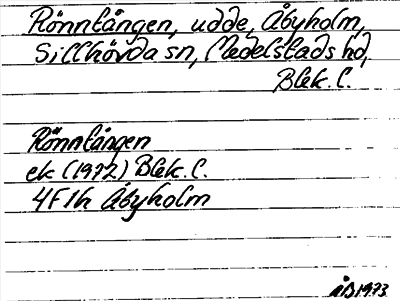 Rönntången, udde, Åbyholm,
Sillhövda sn, Medelstads hd,
Blek. l.
Rönntången
ek (1972) Blek. l.
4F1h Åbyholm
ÅB 1973